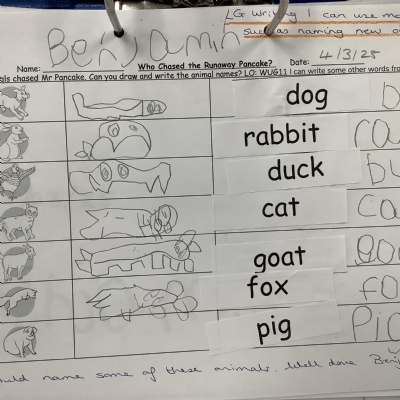 LG Writing I can use ma
such as naming new o
Benjamin
Name: Who Chased the Runaway Pancake? Date: 4/3/25
als chased Mr Pancake. Can you draw and write the animal names? LO: WUG11 I can write some other words from
dog
rabbit ra
duck du
cat ca
goat goa
fox fo
pig Pig
uld name some of these animals. Well done Benj